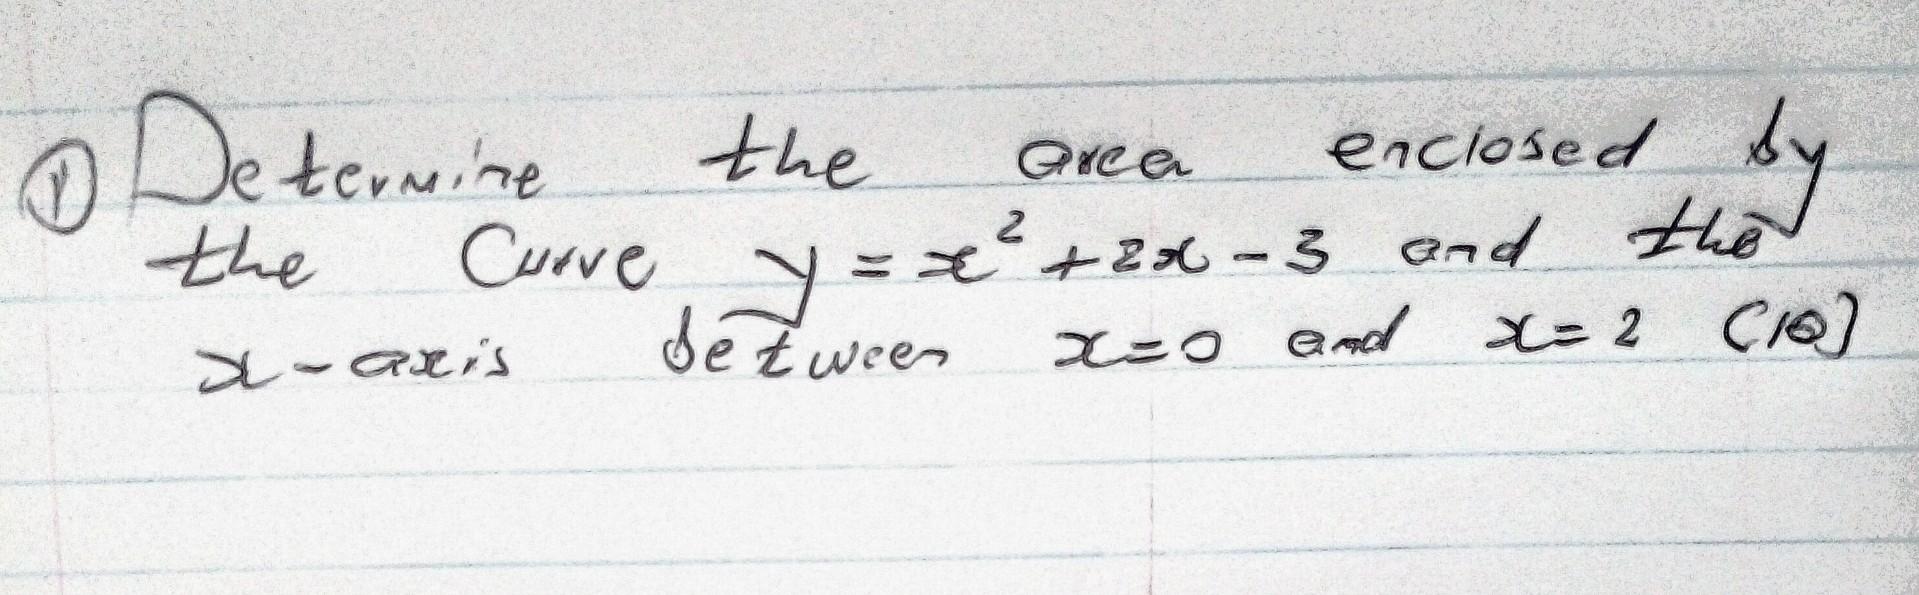 ① Determine the area enclosed by
the Curve y = x² + 2x - 3 and the
x-axis between x=0 and x=2 (10]